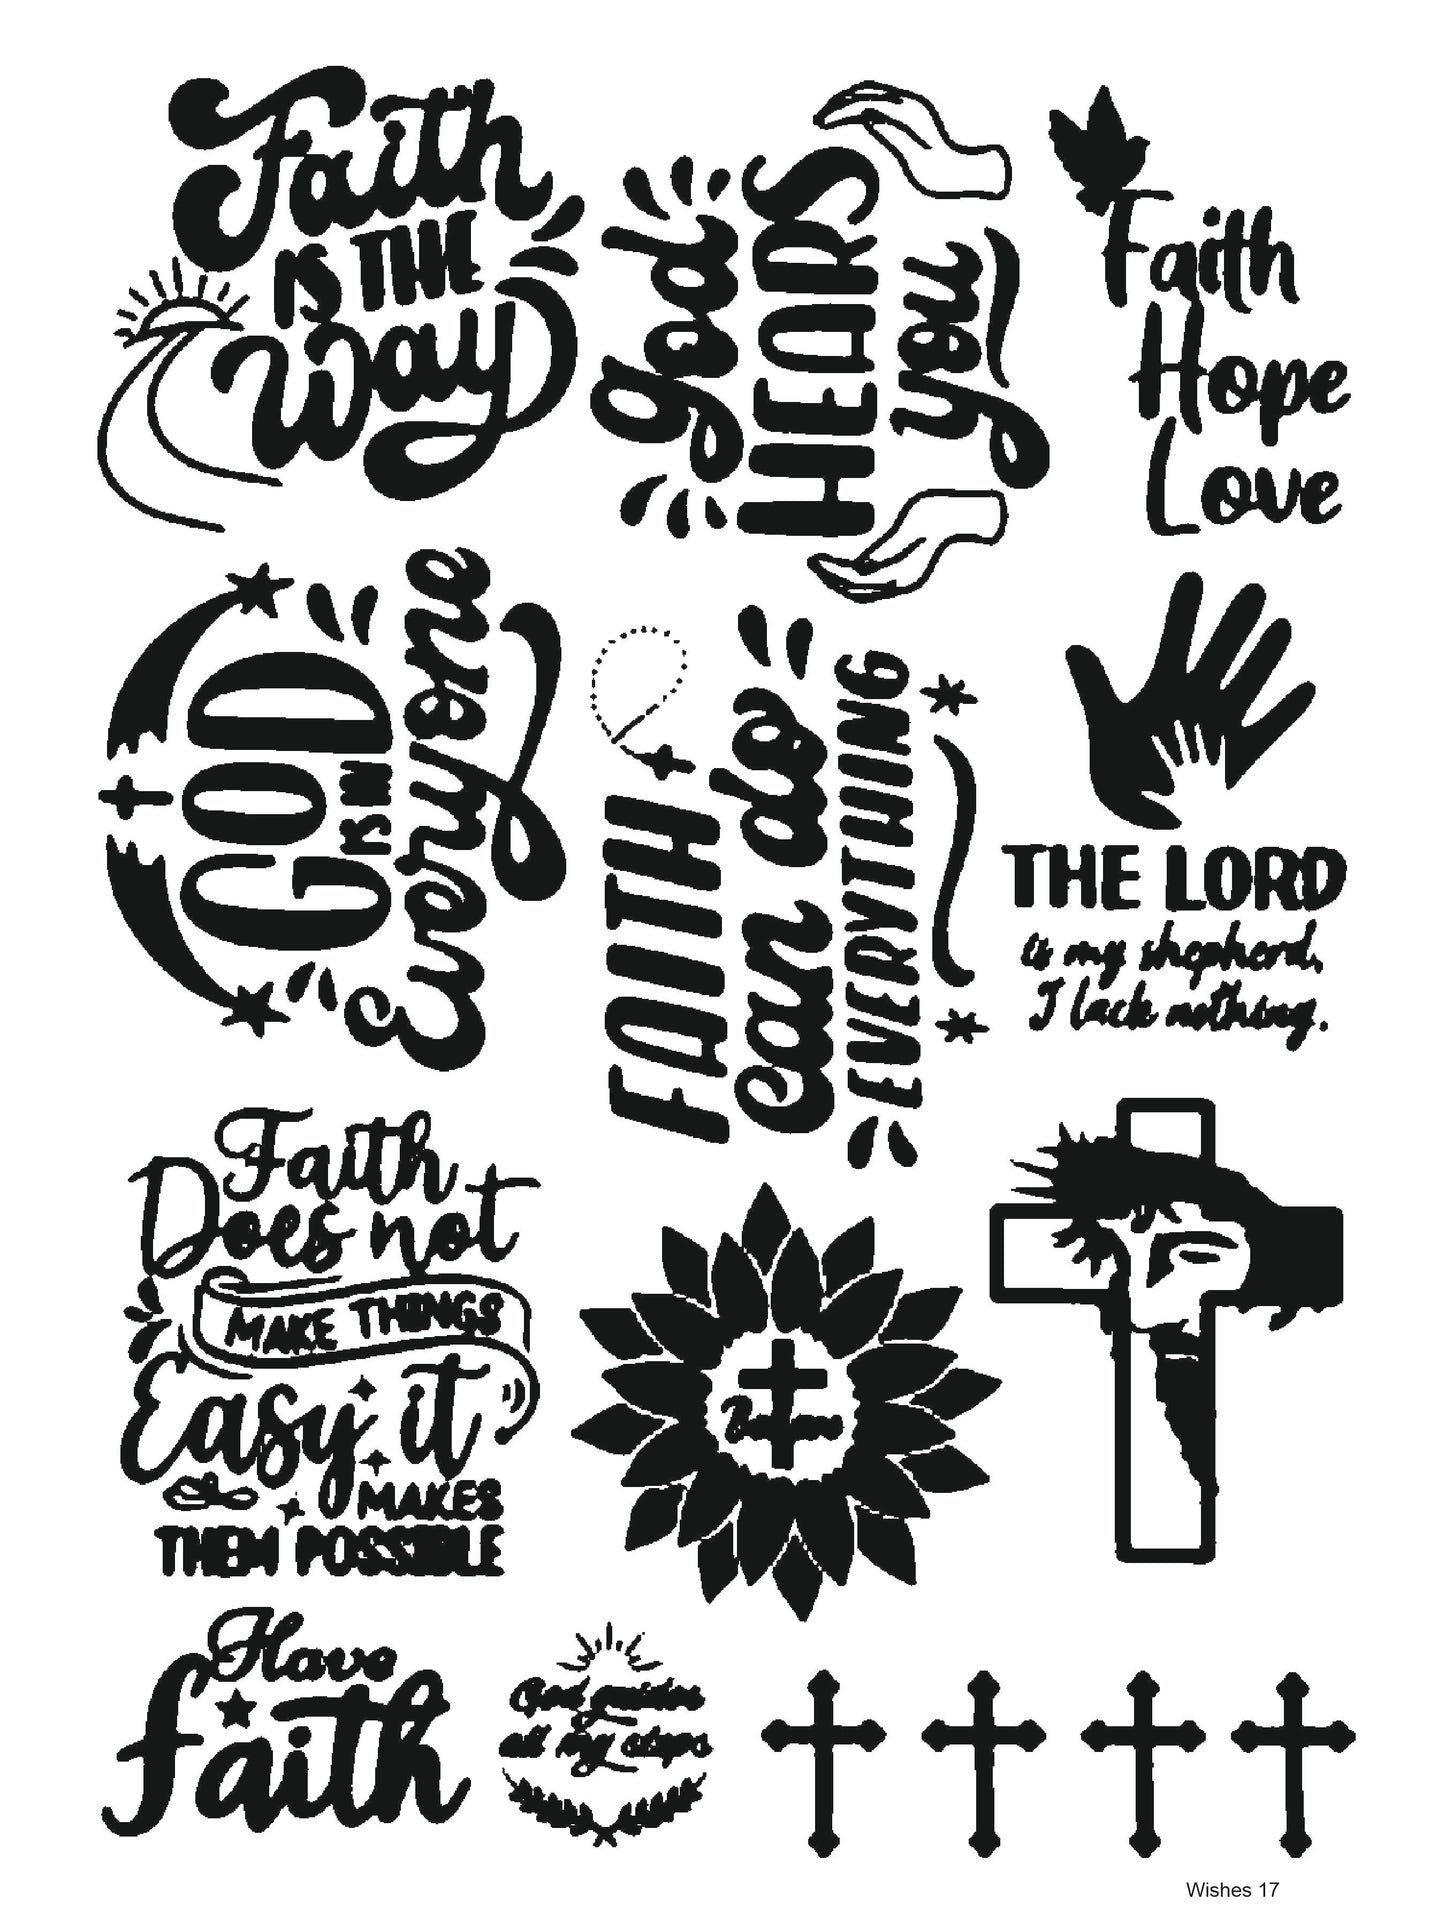 Faith
IS THE
Way
god
HEARS
you
Faith
Hope
Love
GOD
IS IN
Everyone
FAITH
can do
EVERYTHING
THE LORD
is my shepherd,
I lack nothing.
Faith
Does not
MAKE THINGS
Easy it
MAKES
THEM POSSIBLE
Believe
Have
faith
God guides
all my steps
Wishes 17